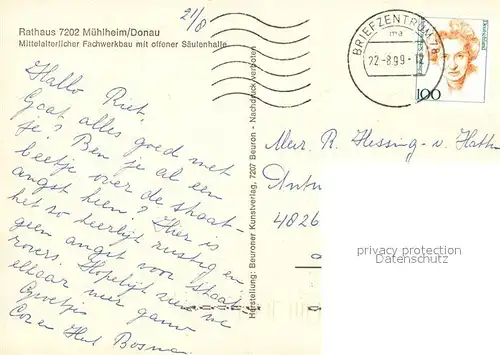 Rathaus 7202 Mühlheim/Donau
Mittelalterlicher Fachwerkbau mit offener Säulenhalle
21/8
Hallo Riet,
Gaat alles goed met
je? Ben je al een
beetje over de straat-
angst heen? Hier is
het zo heerlijk rustig en
geen angst voor straat-
rovers. Hopelijk zien we
elkaar weer gauw
Groetjes
Cor en Bosma
Herstellung: Beuroner Kunstverlag, 7207 Beuron - Nachdruck verboten
BRIEFZENTRUM 78
ma
22-8.99-12
Deutschland
100
Mevr. R. Hessing - v.
4826
privacy protection
Datenschutz